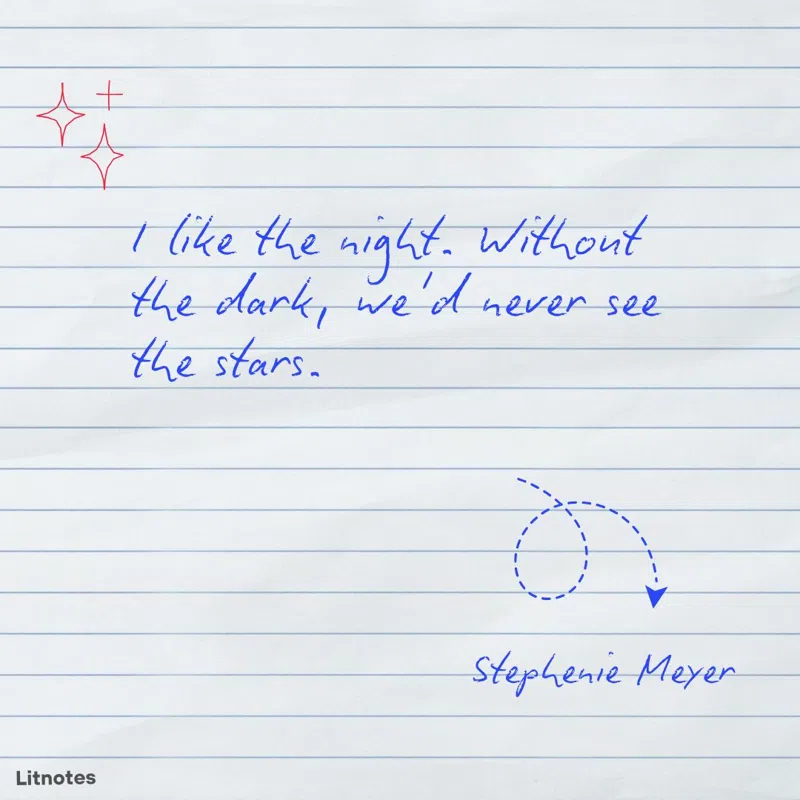 I like the night. Without
the dark, we'd never see
the stars.
Stephenie Meyer
Litnotes